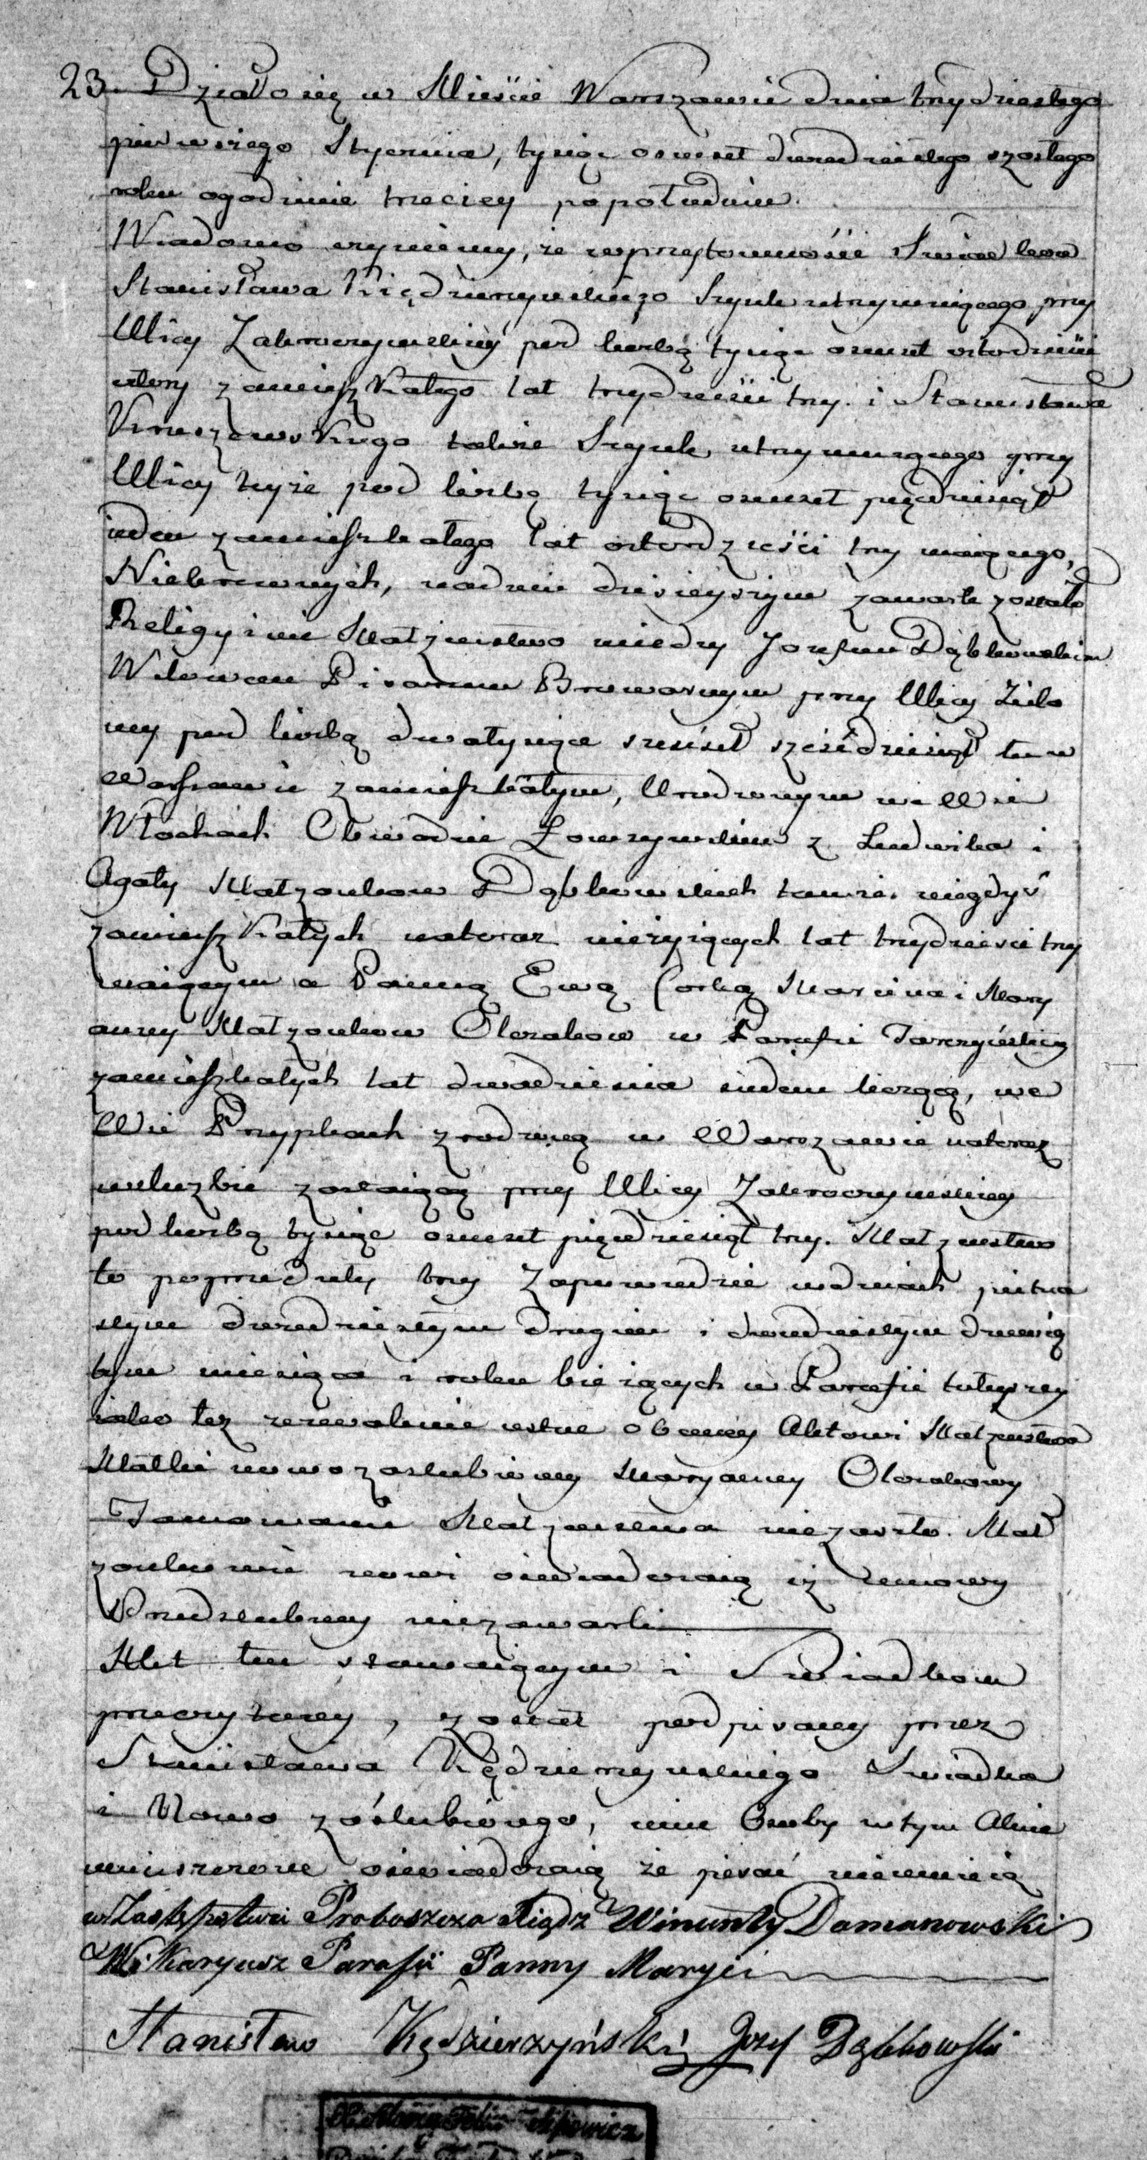 23. Działo się w Mieście Warszawie dnia trzydziestego
pierwszego Stycznia, tysiąc osmset dwudziestego szostego
roku o godzinie trzeciey popołudniu.
Wiadomo czyniemy, że w przytomności Swiadkow
Stanisława Kiędzierzynskiego Szynk utrzymuiącego przy
Ulicy Zakroczymskiey pod liczbą tysiąc osmset
zamieszkałego lat trzydzieści trzy i Stanisława
Kruszewskiego także Szynk utrzymuiącego przy
Ulicy teyże pod liczbą tysiąc osmset pięćdziesiąt
ieden zamieszkałego lat czterdzieści trzy maiącego,
Niekrewnych, na dniu dzisieyszym zawarte zostało
Religiyne Małżenstwo miedzy Jozefem Dąbkowskim
Wdowcem Pisarzem Browarnym przy Ulicy
pod liczbą dwa tysiące sześćset sześćdziesiąt tu w
Warszawie zamieszkałym, Urodzonym we Wsi
Włochach Obwodzie z Ludwika i
Agaty Małżonkow Dąbkowskich tamże niegdyś
zamieszkałych na teraz nieżyiących lat trzydzieści trzy
maiącym a Panną Ewą Corką Marcina i Mary
anny Małżonkow w Parafii Tarczyńskiey
zamieszkałych lat dwadzieścia siedem liczącą, we
Wsi Przypkach zrodzoną w Warszawie na teraz
w służbie zostaiącą przy Ulicy Zakroczymskiey
pod liczbą tysiąc osmset pięćdziesiąt trzy. Małżenstwo
to poprzedziły trzy Zapowiedzie w dniach pietna
stym dwudziestym drugim i dwudziestym dziewią
tym miesiąca i roku bieżących w Parafii tuteyszey
iako też zezwolenie ustne obecney Aktowi Małżenstwa
Matki nowo zaslubioney Maryanny
Tamowanie Małżenstwa nie zaszło. Mał
żonkowie nowi oświadczaią iż umowy
Przedslubney nie zawarli
Akt ten stawaiącym i Swiadkom
przeczytany, został podpisany przez
Stanisława Kędzierzynskiego Swiadka
i Nowo zaślubionego, inne Osoby w tym Akcie
umieszczone oświadczaią że pisać nieumieią
w Zastępstwie Proboszcza Xiądz Wincenty Damanowski
Wikaryusz Parafii Panny Maryi
Stanisław Kędzierzyński Jozef Dąbkowski